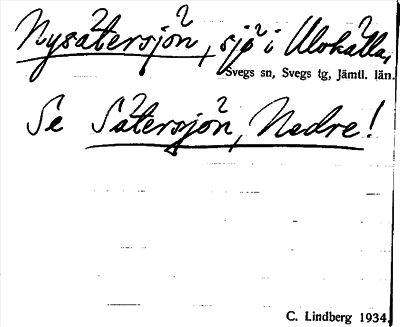 Nysätersjön, sjö i Ulvkälla,
Svegs sn, Svegs tg, Jämtl. län.
Se Sätersjön, Nedre!
C. Lindberg 1934.